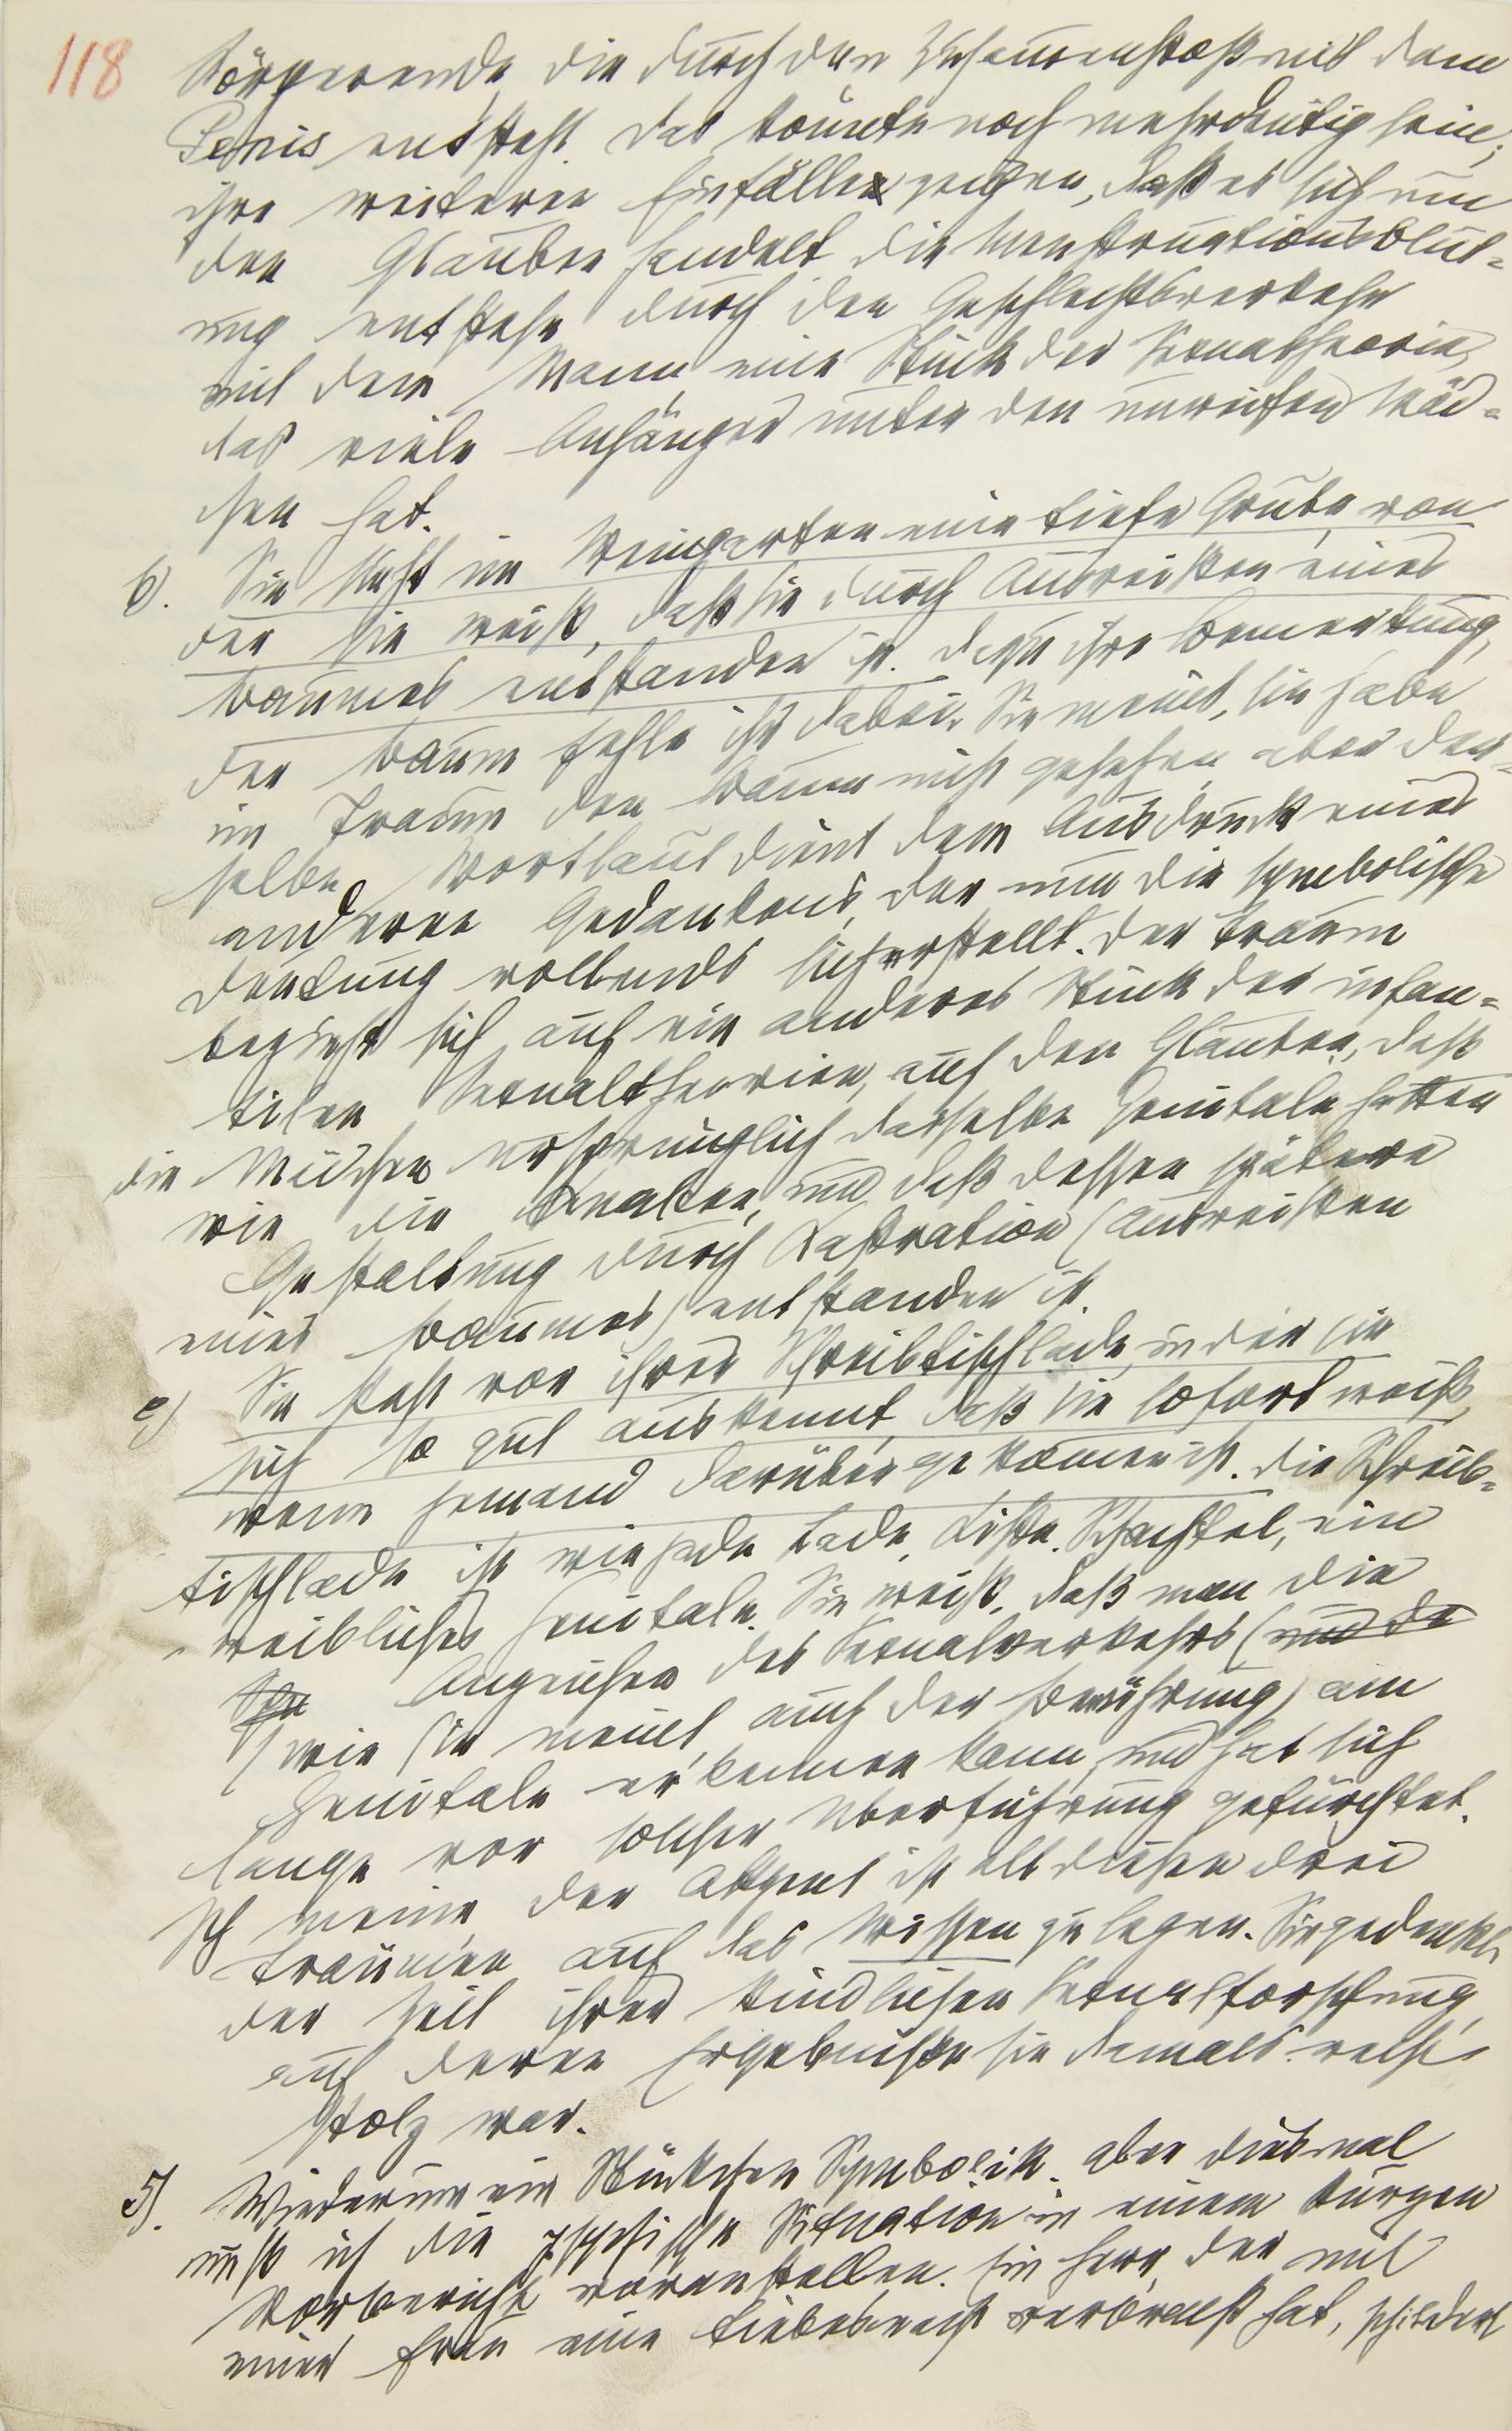 118
Körperende, die durch den Zusammenstoß mit dem
Penis entsteht. Das könnte noch mehrdeutig sein;
ihre weiteren Einfälle zeigen, daß es sich um
den Glauben handelt, die Menstruationsblut-
ung entstehe durch den Geschlechtsverkehr
mit dem Mann, ein Stück der Sexualtheorie,
das viele Anhänger unter den unreifen Mäd-
chen hat.
b). Sie sieht im Weingarten eine tiefe Grube, von
der sie weiß, daß sie durch Ausreißen eines
Baumes entstanden ist. Dazu ihre Bemerkung,
der Baum fehle ihr dabei. Sie meint, sie habe
im Traum den Baum nicht gesehen, aber der-
selbe Wortlaut dient dem Ausdruck eines
anderen Gedankens, der nun die symbolische
Deutung vollends sicherstellt. Der Traum
bezieht sich auf ein anderes Stück der infan-
tilen Sexualtheorien, auf den Glauben, daß
die Mädchen ursprünglich dasselbe Genitale hatten
wie die Knaben, und daß dessen spätere
Gestaltung durch Kastration (Ausreißen
eines Baumes) entstanden ist.
c) Sie steht vor ihrer Schreibtischlade, in der sie
sich so gut auskennt, daß sie sofort weiß,
wenn jemand darüber gekommen ist. Die Schreib-
tischlade ist wie jede Lade, Kiste, Schachtel, ein
weibliches Genitale. Sie weiß, daß man die
Anzeichen des Sexualverkehrs (und de
(wie sie meint, auch der Berührung) am
Genitale erkennen kann, und hat sich
lange vor solcher Überführung gefürchtet.
Ich meine der Akzent ist all diesen drei
Träumen auf das Wissen zu legen. Sie gedenkt
der Zeit ihrer kindlichen Sexualforschung,
auf deren Ergebnisse sie damals recht
stolz war.
5). Wiederum ein Stückchen Symbolik. Aber diesmal
muß ich die psychische Situation in einem kurzen
Vorbericht voranstellen. Ein Herr, der mit
einer Frau eine Liebesnacht verbracht hat, schildert